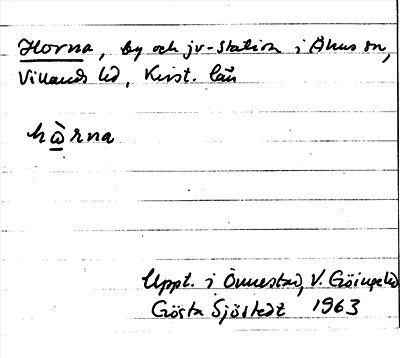 Horna, by och jv-station i Åhus sn,
Villands hd, Krist. län
hὼrna
Uppt. i Önnestad, V. Göinge hd
Gösta Sjöstedt 1963